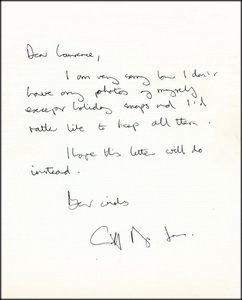 Dear Lawrence,
I am very sorry but I don't
have any photos of myself
except holiday snaps and I'd
rather like to keep all them.
I hope this letter will do
instead.